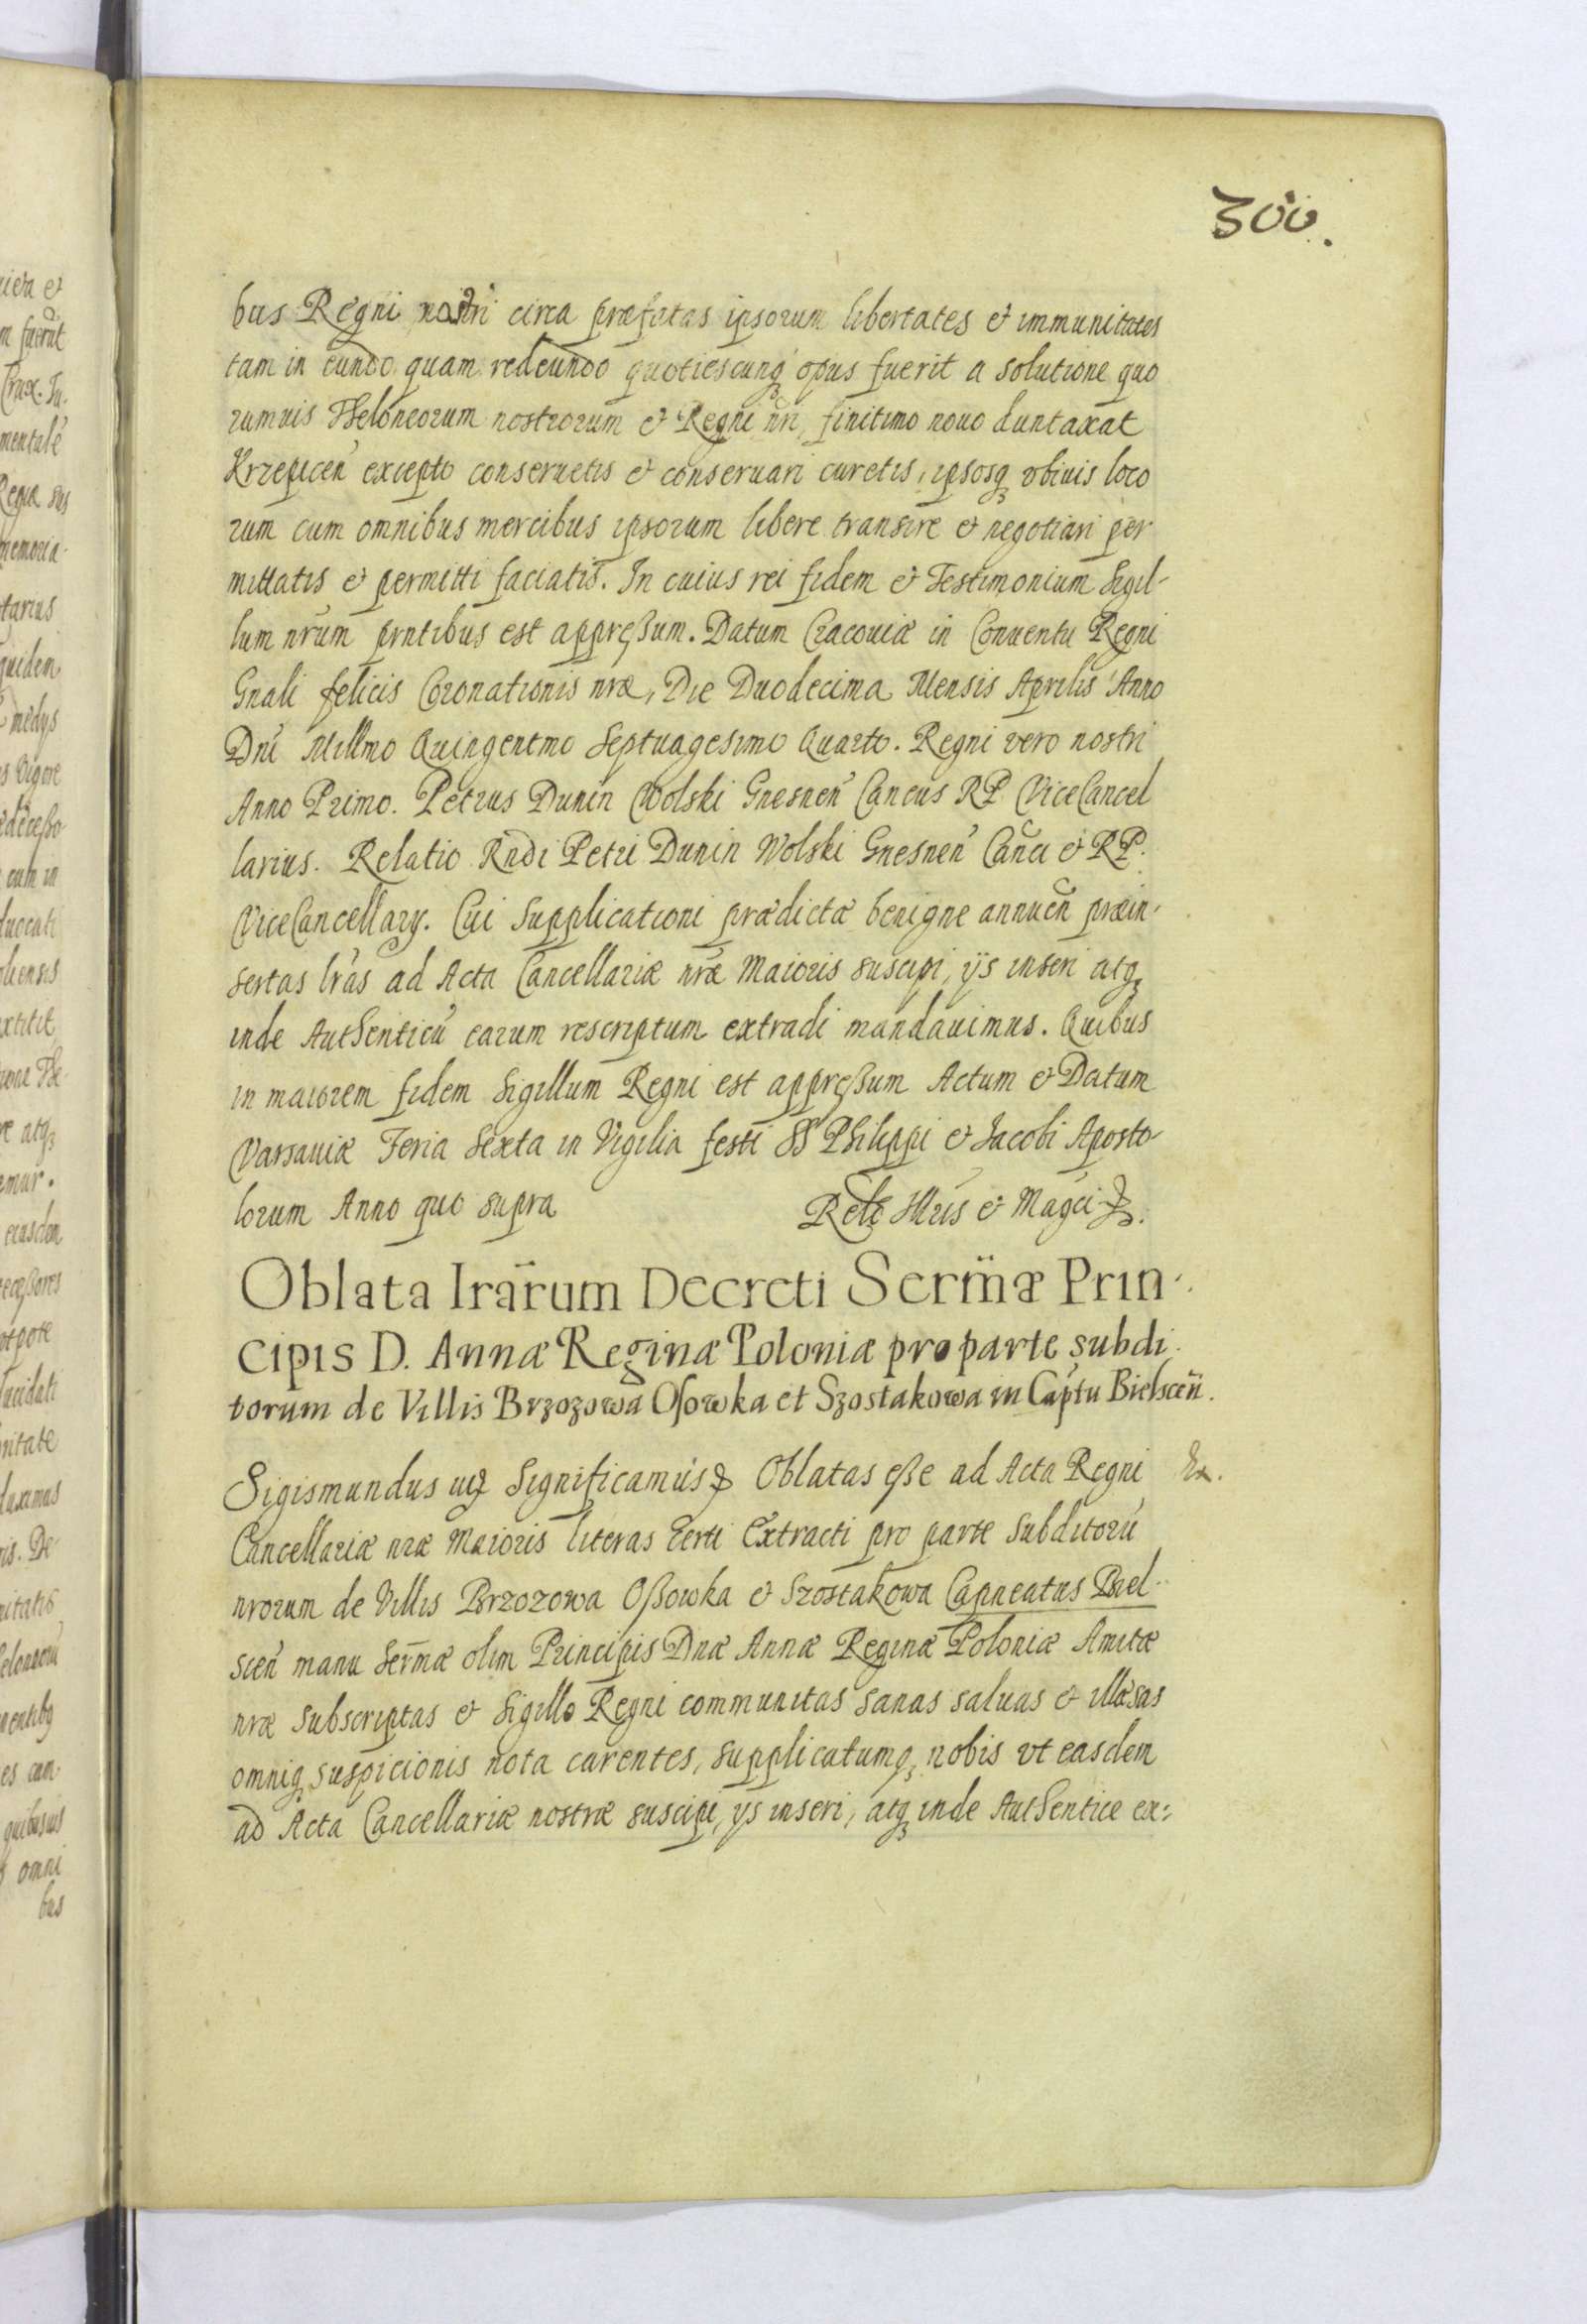 300.
bus Regni nostri circa præfatas ipsorum libertates et immunitates
tam in eundo quam redeundo quotiescunq3 opus fuerit a solutione quo
rumuis Theloneorum nostrorum et Regni nri, finitimo nouo duntaxat
Krzepicen̄ excepto conseruetis et conseruari curetis, ipsosq3 vbiuis loco
rum cum omnibus mercibus ipsorum libere transire et negotiari per
mittatis et permitti faciatis. In cuius rei fidem et Testimonium Sigil-
lum nrum prntibus est appreßum. Datum Cracouiæ in Conuentu Regni
Gnali felicis Coronationis nræ, Die Duodecima Mensis Aprilis Anno
Dni Millmo Quingentmo Septuagesimo Quarto. Regni vero nostri
Anno Primo. Petrus Dunin Wolski Gnesnen̄ Cancus RP ViceCancel
larius. Relatio Rndi Petri Dunin Wolski Gnesnen̄ Canci et RP.
ViceCancellarÿ. Cui Supplicationi prædictæ benigne annuen̄ præin-
sertas lras ad Acta Cancellariæ nræ Maioris suscipi, ijs inseri atq3
inde Authenticū earum rescriptum extradi mandauimus. Quibus
in maiorem fidem Sigillum Regni est appreßum Actum et Datum
Varsauiæ Feria Sexta in Vigilia festi SS Philippi et Jacobi Aposto-
lorum Anno quo supra
Relo Illris et Magci &.
Oblata lrārum Decreti Serm̄æ Prin-
cipis D. Annæ Reginæ Poloniæ pro parte subdi
torum de Villis Brzozowa Osowka et Szostakowa in Captu Bielscen̄.
Sigismundus uę Significamus & Oblatas eße ad Acta Regni
Ex.
Cancellariæ nræ Maioris literas certi Extracti pro parte Subditorū
nrorum de Villis Brzozowa Oßowka et Szostakowa Capneatus Biel-
scen̄ manu Serm̄æ olim Principis Dnæ Annæ Reginæ Poloniæ Amitæ
nræ subscriptas et Sigillo Regni communitas sanas saluas et illæsas
omniq3 suspicionis nota carentes, supplicatumq3 nobis vt easdem
ad Acta Cancellariæ nostræ suscipi, ijs inseri, atq3 inde Authentice ex-